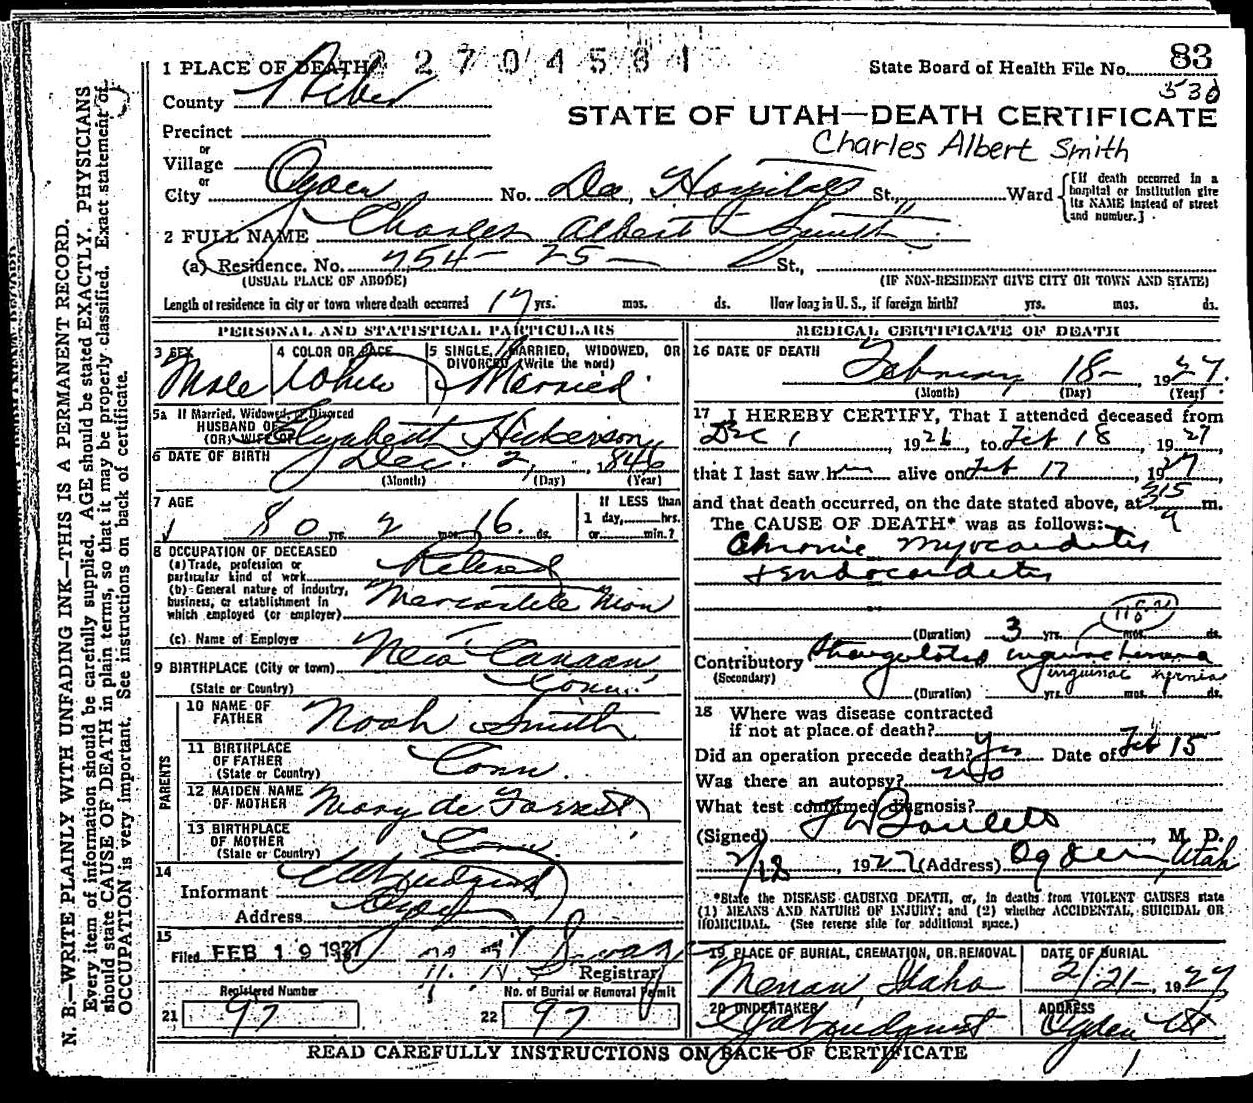 2 7 0 4 5 8 1
1 PLACE OF DEATH
State Board of Health File No. 83
530
County Weber
STATE OF UTAH—DEATH CERTIFICATE
Precinct
Charles Albert Smith
or
Village
or
City Ogden No. Dee Hospital St., Ward
[If death occurred in a hospital or institution give its NAME instead of street and number.]
2 FULL NAME Charles Albert Smith
(a) Residence. No. 754 - 25 - St.,
(USUAL PLACE OF ABODE) (IF NON-RESIDENT GIVE CITY OR TOWN AND STATE)
Length of residence in city or town where death occurred 17 yrs. mos. ds. How long in U.S., if foreign birth? yrs. mos. ds.
PERSONAL AND STATISTICAL PARTICULARS
3 SEX 4 COLOR OR RACE 5 SINGLE, MARRIED, WIDOWED, OR DIVORCED (Write the word)
Male White Married
5a If Married, Widowed, or Divorced
HUSBAND OF
(OR) WIFE OF Elizabeth Hickerson
6 DATE OF BIRTH Dec. 2, 1846
(Month) (Day) (Year)
7 AGE If LESS than
1 day, hrs.
80 yrs. 2 mos. 16 ds. or min.?
8 OCCUPATION OF DECEASED
(a) Trade, profession or
particular kind of work Retired
(b) General nature of industry,
business, or establishment in
which employed (or employer) Mercantile Man
(c) Name of Employer
9 BIRTHPLACE (City or town) New Canaan
(State or Country) Conn.
PARENTS
10 NAME OF
FATHER Noah Smith
11 BIRTHPLACE
OF FATHER Conn.
(State or Country)
12 MAIDEN NAME
OF MOTHER Mary de Forrest
13 BIRTHPLACE
OF MOTHER Conn
(State or Country)
14
Informant
Address Ogden
15
Filed FEB 19 1927
Registrar
Registered Number No. of Burial or Removal Permit
21 97 22 97
MEDICAL CERTIFICATE OF DEATH
16 DATE OF DEATH
February 18 - , 1927.
(Month) (Day) (Year)
17 I HEREBY CERTIFY, That I attended deceased from
Dec 1, 1926, to Feb 18, 1927
that I last saw him alive on Feb 17, 1927
and that death occurred, on the date stated above, at 315 a m.
The CAUSE OF DEATH* was as follows:
Chronic myocarditis
+ endocarditis
(Duration) 3 yrs. mos. ds.
Contributory Strangulated inguinal hernia
(Secondary) inguinal hernia
(Duration) yrs. mos. ds.
18 Where was disease contracted
if not at place of death?
Did an operation precede death? Yes Date of Feb 15
Was there an autopsy? no
What test confirmed diagnosis?
(Signed) M. D.
2/18, 1927 (Address) Ogden, Utah
*State the DISEASE CAUSING DEATH, or, in deaths from VIOLENT CAUSES state
(1) MEANS AND NATURE OF INJURY; and (2) whether ACCIDENTAL, SUICIDAL OR
HOMICIDAL. (See reverse side for additional space.)
19 PLACE OF BURIAL, CREMATION, OR REMOVAL DATE OF BURIAL
Menan, Idaho 2/21-, 1927
20 UNDERTAKER ADDRESS
Ogden Ut
READ CAREFULLY INSTRUCTIONS ON BACK OF CERTIFICATE
N. B.—WRITE PLAINLY WITH UNFADING INK—THIS IS A PERMANENT RECORD.
Every item of information should be carefully supplied. AGE should be stated EXACTLY. PHYSICIANS
should state CAUSE OF DEATH in plain terms, so that it may be properly classified. Exact statement of
OCCUPATION is very important. See instructions on back of certificate.